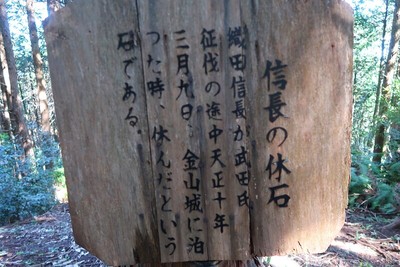 信長の休石
織田信長が武田氏
征伐の途中天正十年
三月九日、金山城に泊
った時、休んだという
石である。